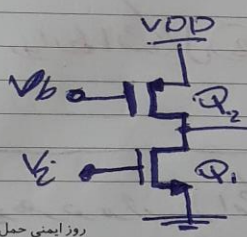 VDD
Vb
Q2
Vi
Q1
روز ایمنی حمل